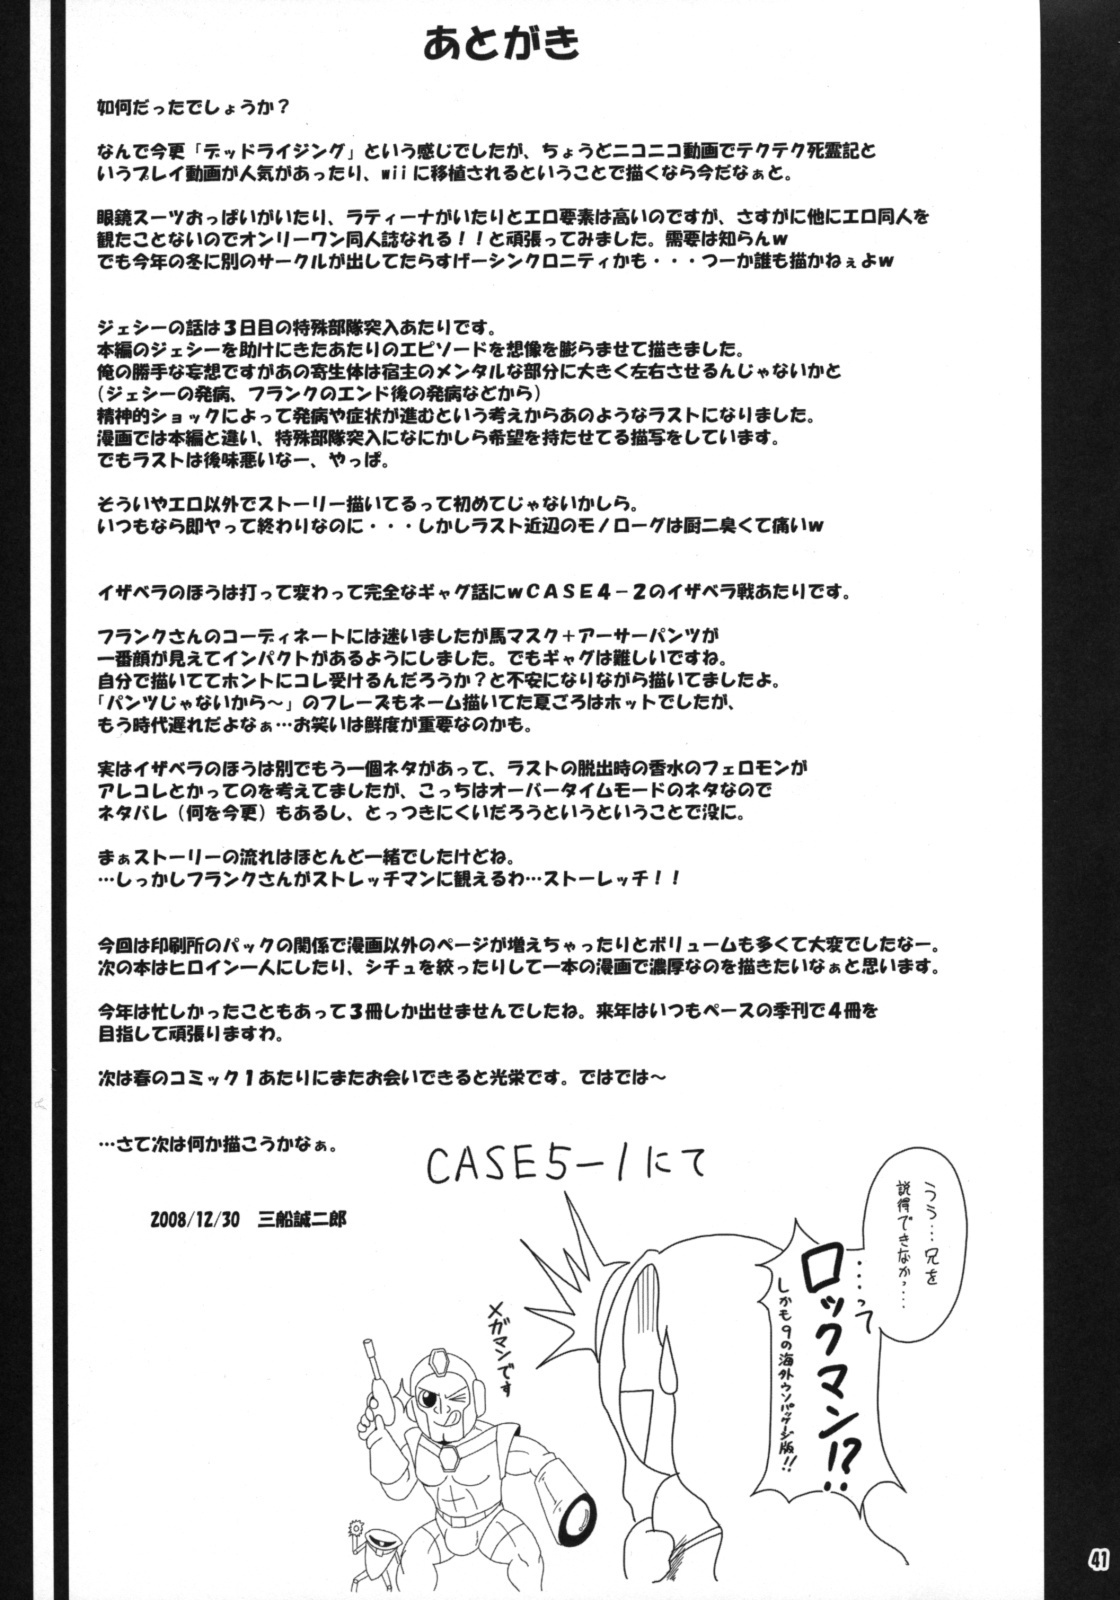 あとがき
如何だったでしょうか？
なんで今更「デッドライジング」という感じでしたが、ちょうどニコニコ動画でテクテク死霊記と
いうプレイ動画が人気があったり、wiiに移植されるということで描くなら今だなぁと。
眼鏡スーツおっぱいがいたり、ラティーナがいたりとエロ要素は高いのですが、さすがに他にエロ同人を
観たことないのでオンリーワン同人誌なれる！！と頑張ってみました。需要は知らんｗ
でも今年の冬に別のサークルが出してたらすげーシンクロニティかも・・・つーか誰も描かねぇよｗ
ジェシーの話は３日目の特殊部隊突入あたりです。
本編のジェシーを助けにきたあたりのエピソードを想像を膨らませて描きました。
俺の勝手な妄想ですがあの寄生体は宿主のメンタルな部分に大きく左右させるんじゃないかと
（ジェシーの発病、フランクのエンド後の発病などから）
精神的ショックによって発病や症状が進むという考えからあのようなラストになりました。
漫画では本編と違い、特殊部隊突入になにかしら希望を持たせてる描写をしています。
でもラストは後味悪いなー、やっぱ。
そういやエロ以外でストーリー描いてるって初めてじゃないかしら。
いつもなら即ヤって終わりなのに・・・しかしラスト近辺のモノローグは厨二臭くて痛いｗ
イザベラのほうは打って変わって完全なギャグ話にｗＣＡＳＥ４－２のイザベラ戦あたりです。
フランクさんのコーディネートには迷いましたが馬マスク＋アーサーパンツが
一番顔が見えてインパクトがあるようにしました。でもギャグは難しいですね。
自分で描いててホントにコレ受けるんだろうか？と不安になりながら描いてましたよ。
「パンツじゃないから～」のフレーズもネーム描いてた夏ごろはホットでしたが、
もう時代遅れだよなぁ…お笑いは鮮度が重要なのかも。
実はイザベラのほうは別でもう一個ネタがあって、ラストの脱出時の香水のフェロモンが
アレコレとかってのを考えてましたが、こっちはオーバータイムモードのネタなので
ネタバレ（何を今更）もあるし、とっつきにくいだろうというということで没に。
まぁストーリーの流れはほとんど一緒でしたけどね。
…しっかしフランクさんがストレッチマンに観えるわ…ストーレッチ！！
今回は印刷所のパックの関係で漫画以外のページが増えちゃったりとボリュームも多くて大変でしたなー。
次の本はヒロイン一人にしたり、シチュを絞ったりして一本の漫画で濃厚なのを描きたいなぁと思います。
今年は忙しかったこともあって３冊しか出せませんでしたね。来年はいつもペースの季刊で４冊を
目指して頑張りますわ。
次は春のコミック１あたりにまたお会いできると光栄です。ではでは～
…さて次は何か描こうかなぁ。
2008/12/30　三船誠二郎
CASE5-1にて
うう…兄を
説得できなかっ…
…って
ロックマン!?
しかも9の海外ウソパッケージ版!!
メガマンです
41